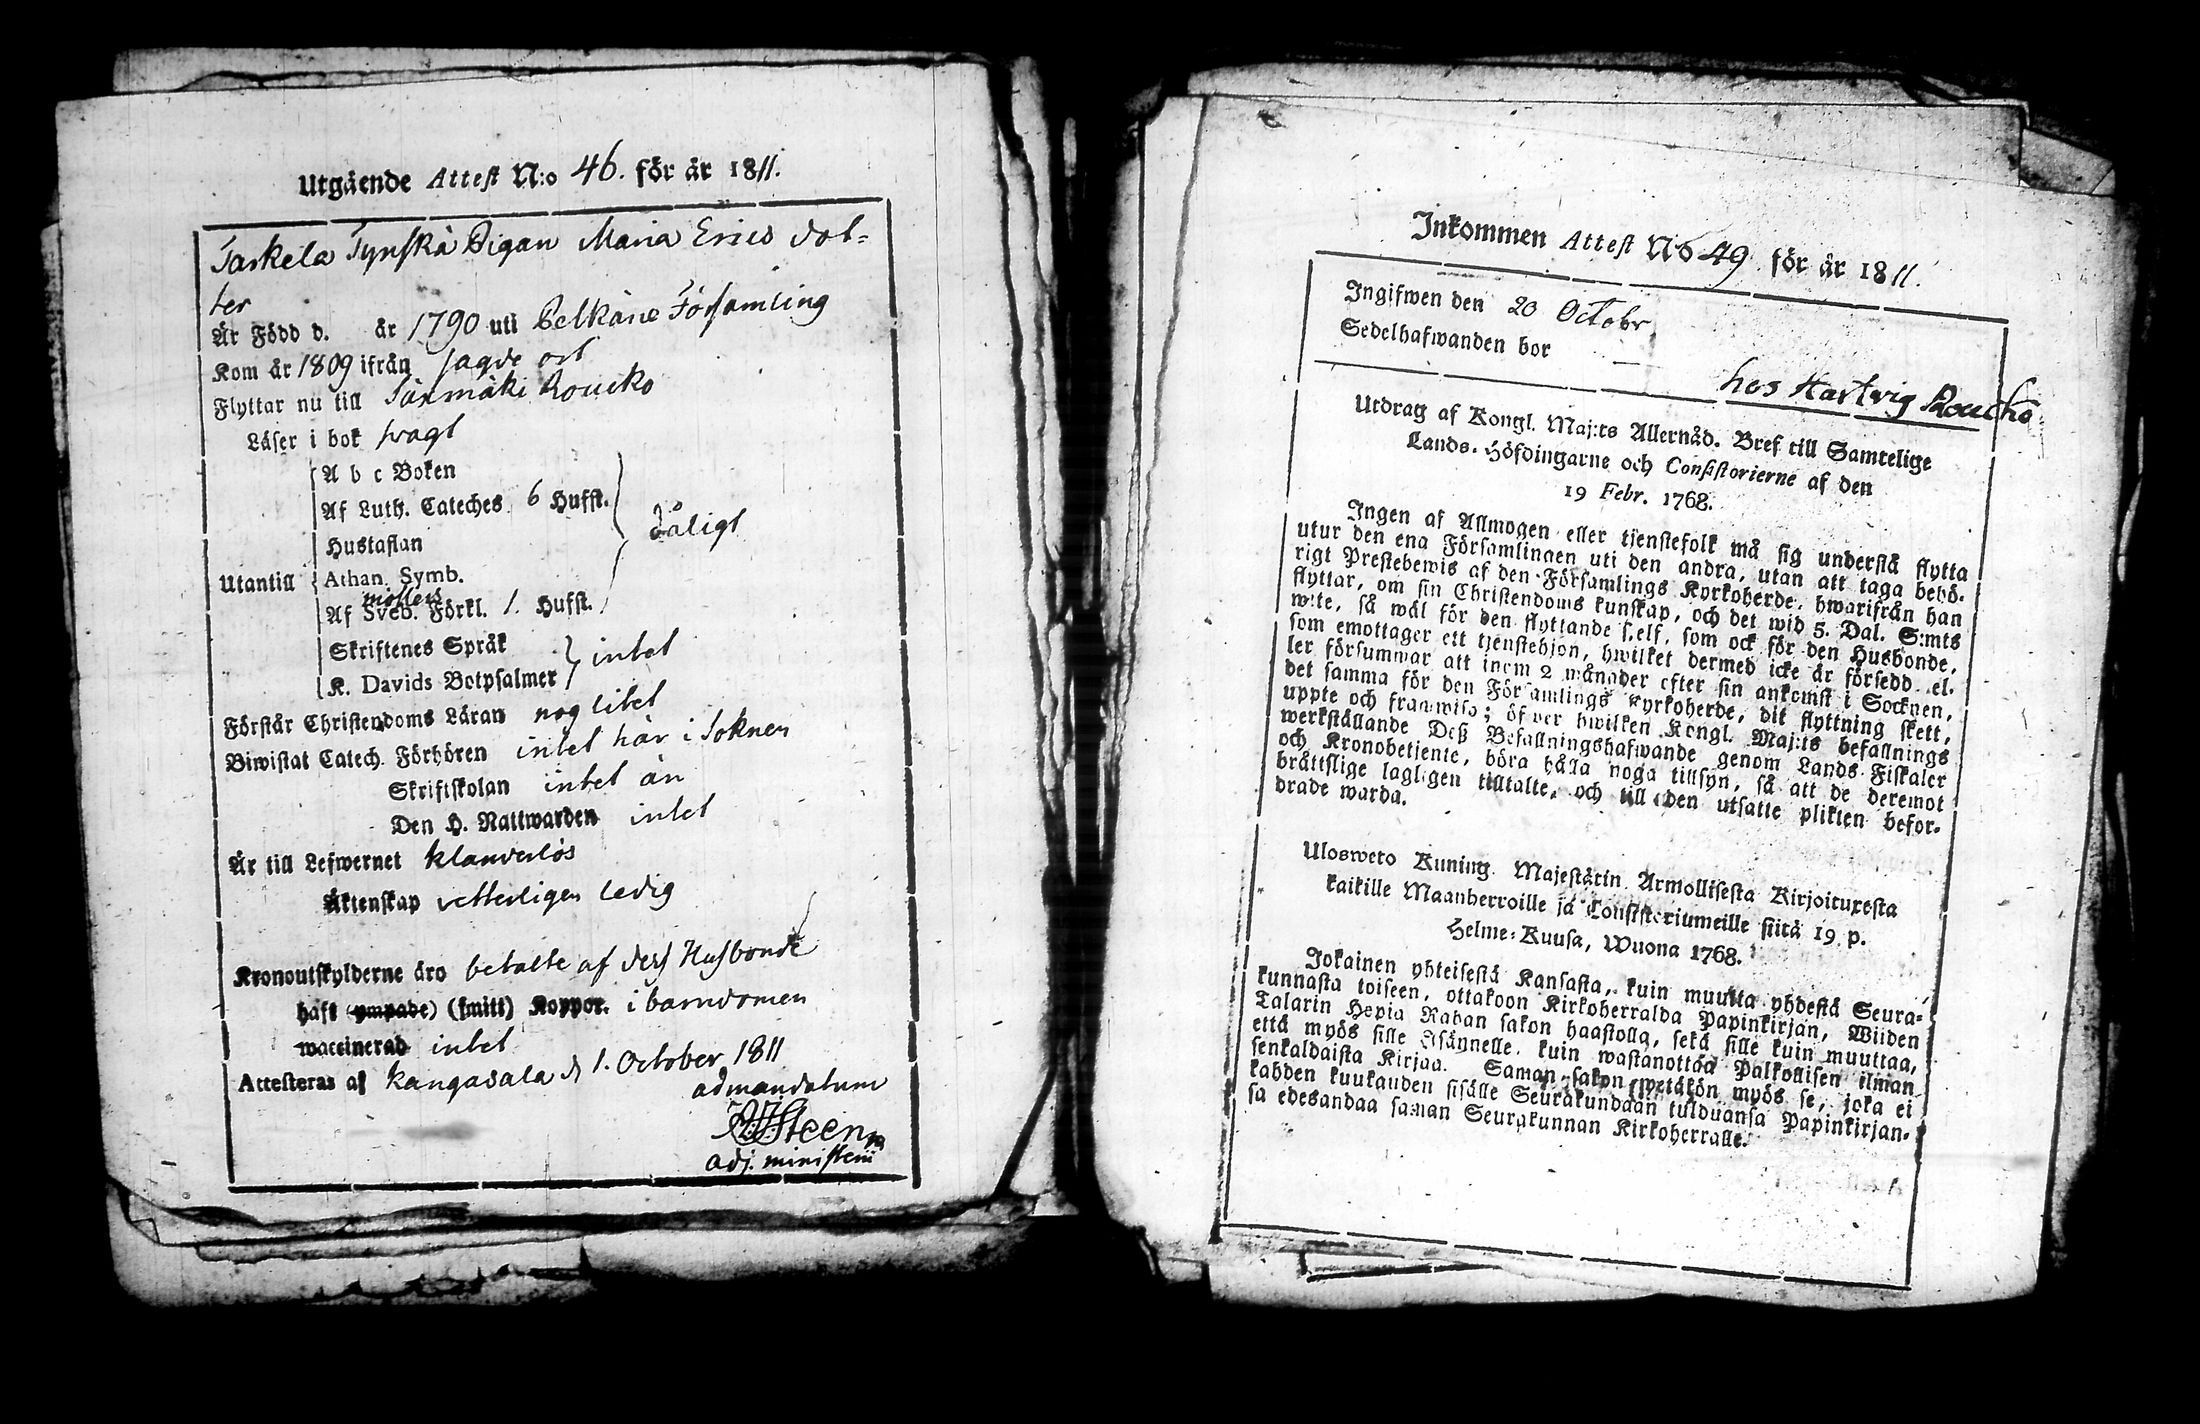 Utgående Attest N:o 46. för år 1811.
Taskela Tynskä Pigan Maria Erics dot=
ter
Är Född d. år 1790 uti Pelkäne Församling
Kom år 1809 ifrån sagde ort
Flyttar nu till Särmäki Roucko
Läser i bok swagt
A b c Boken
Af Luth. Cateches 6 Hufst.
Hustaflan
dåligt
Utantill
Athan. Symb.
möllers
Af Sveb. Förkl. 1. Hufst.
Skriftenes Språk
K. Davids Botpsalmer
intet
Förstår Christendoms Läran nog litet
Biwistat Catech. Förhören intet här i Soknen
Skriftskolan intet än
Den H. Nattwarden intet
Är till Lefwernet klanderlös
Äktenskap vetterligen ledig
Kronoutskylderne äro betalte af dess Husbonde
haft (ympade) (smitt) Koppor. i barndomen
waccinerad intet
Attesteras af Kangasala d 1. October 1811
ad mandatum
Steen
adj. ministerii
Inkommen Attest No 49 för år 1811.
Ingifwen den 20 Octobr
Sedelhafwanden bor
hos Hartvig Roucko
Utdrag af Kongl. Maj:ts Allernåd. Bref till Samtelige
Lands-Höfdingarne och Consistorierne af den
19 Febr. 1768.
Ingen af Allmogen eller tjenstefolk må sig understå flytta
utur den ena Församlingen uti den andra, utan att taga behö-
rigt Prestebewis af den Församlings Kyrkoherde, hwarifrån han
flyttar, om sin Christendoms kunskap, och det wid 5. Dal. S:mts
wite, så wäl för den flyttande sielf, som ock för den Husbonde,
som emottager ett tjenstehjon, hwilket dermed icke är försedd el-
ler försummar att inom 2 månader efter sin ankomst i Socknen,
det samma för den Församlings Kyrkoherde, dit flyttning skett,
uppte och framwisa; öfwer hwilken Kongl. Maj:ts befallnings
werkställande Deß Befallningshafwande genom Lands Fiskaler
och Kronobetjente, böra hålla noga tillsyn, så att de deremot
bråttslige lagligen tilltalte, och till den utsatte plikten befor-
drade warda.
Ulosweto Kuning. Majestätin Armollisesta Kirjoituxesta
kaikille Maanherroille ja Consistoriumeille siitä 19 p.
Helme-Kuusa, Wuona 1768.
Jokainen yhteisestä Kansasta, kuin muutta yhdestä Seura-
kunnasta toiseen, ottakoon Kirkoherralda Papinkirjan, Wiiden
Talarin Hopia Rahan sakon haastolla, sekä sille kuin muuttaa,
että myös sille Isännelle, kuin wastanottaa Palkollisen ilman
senkaldaista Kirjaa. Saman sakon wetäkön myös se, joka ei
kahden kuukauden sisälle Seurakundaan tulduansa Papinkirjan-
sa edesandaa saman Seurakunnan Kirkoherralle.